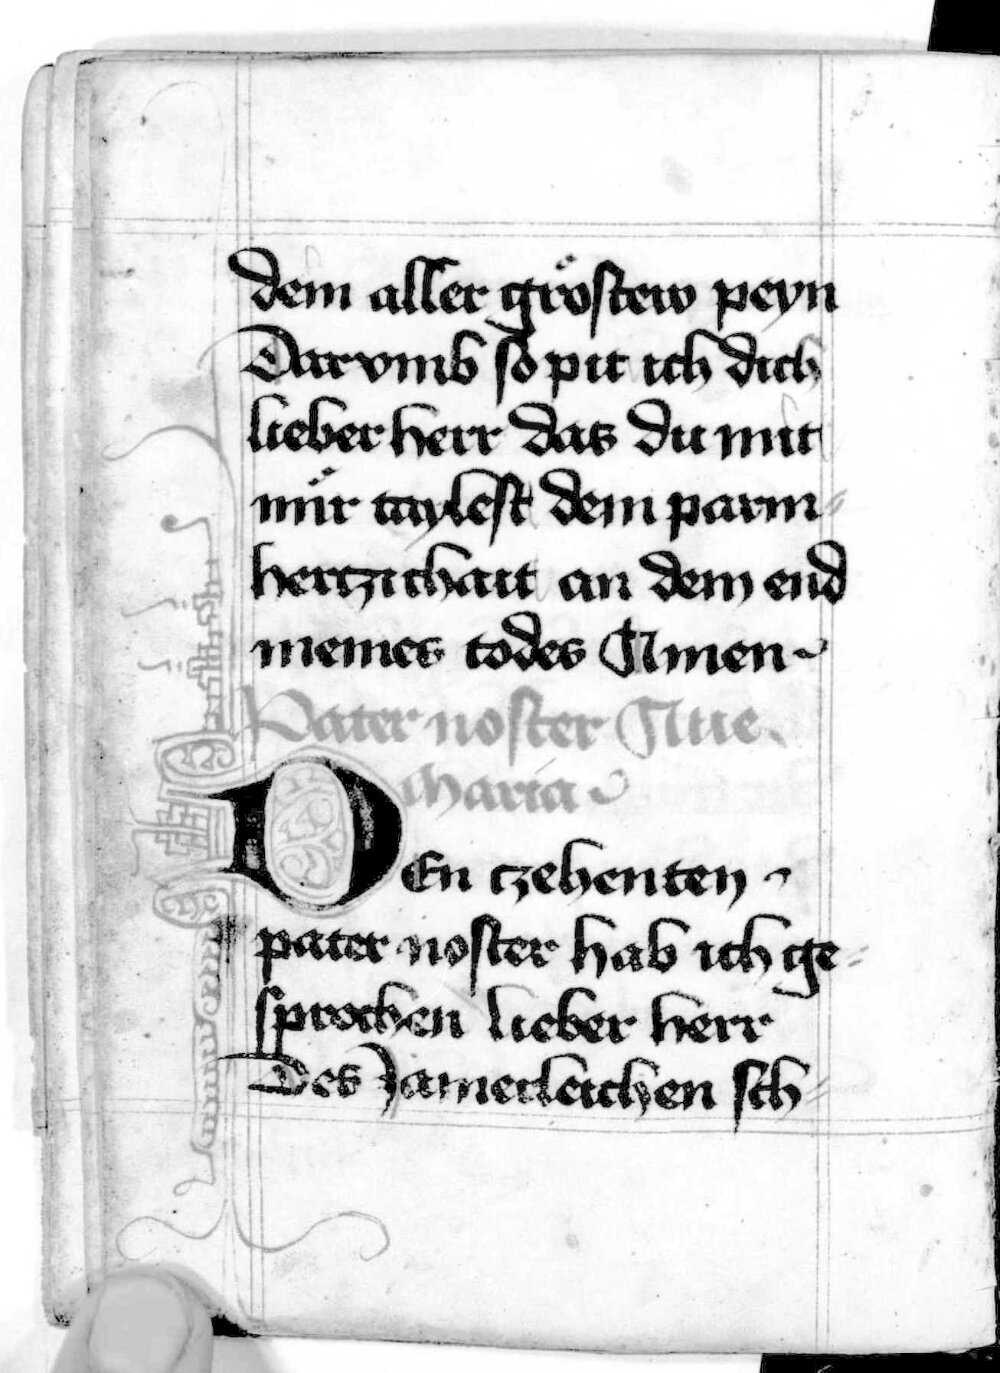 dem aller gröstew peyn
Darvmb so pit ich dich
lieber herr das du mit
mür taylest dem parm
hertzichait an dem end
meines todes Amen
Pater noster Aue
Maria
DEn czehenten
pater noster hab ich ge
sprochen lieber herr
Des Jamerleichen sch